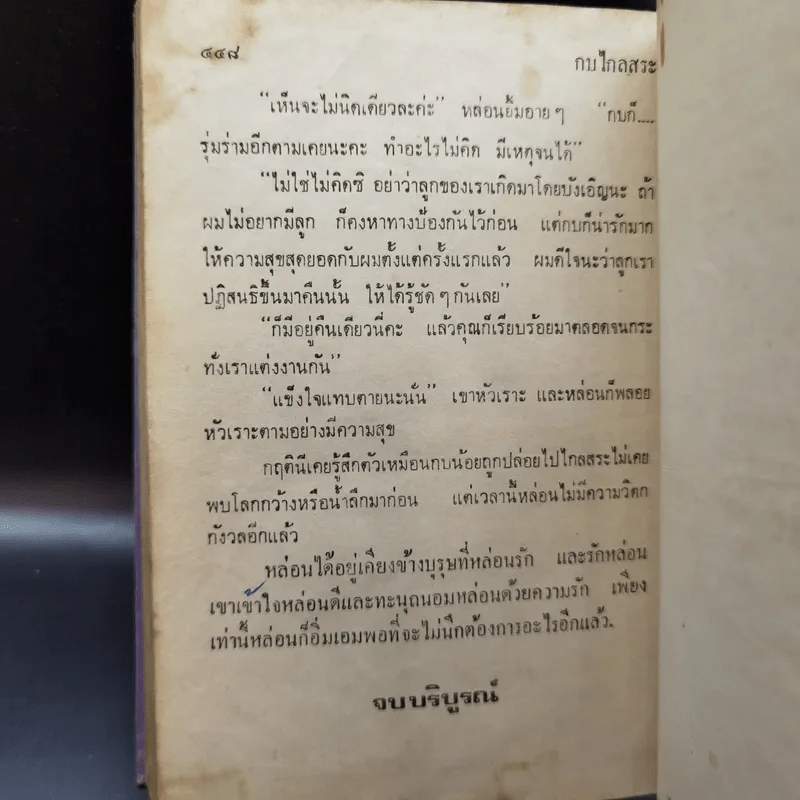 ๔๔๘
กบไกลสระ
“เห็นจะไม่นิดเดียวละค่ะ” หล่อนยิ้มอาย ๆ “กบก็....
รุ่มร่ามอีกตามเคยนะคะ ทำอะไรไม่คิด มีเหตุจนได้”
“ไม่ใช่ไม่คิดซิ อย่าว่าลูกของเราเกิดมาโดยบังเอิญนะ ถ้า
ผมไม่อยากมีลูก ก็คงหาทางป้องกันไว้ก่อน แต่กบก็น่ารักมาก
ให้ความสุขสุดยอดกับผมตั้งแต่ครั้งแรกแล้ว ผมดีใจนะว่าลูกเรา
ปฏิสนธิขึ้นมาคืนนั้น ให้ได้รู้ชัด ๆ กันเลย”
“ก็มีอยู่คืนเดียวนี่คะ แล้วคุณก็เรียบร้อยมาตลอดจนกระ
ทั่งเราแต่งงานกัน”
“แข็งใจแทบตายนะนั่น” เขาหัวเราะ และหล่อนก็พลอย
หัวเราะตามอย่างมีความสุข
กฤตินีเคยรู้สึกตัวเหมือนกบน้อยถูกปล่อยไปไกลสระไม่เคย
พบโลกกว้างหรือน้ำลึกมาก่อน แต่เวลานี้หล่อนไม่มีความวิตก
กังวลอีกแล้ว
หล่อนได้อยู่เคียงข้างบุรุษที่หล่อนรัก และรักหล่อน
เขาเข้าใจหล่อนดีและทะนุถนอมหล่อนด้วยความรัก เพียง
เท่านี้หล่อนก็อิ่มเอมพอที่จะไม่นึกต้องการอะไรอีกแล้ว.
จบบริบูรณ์